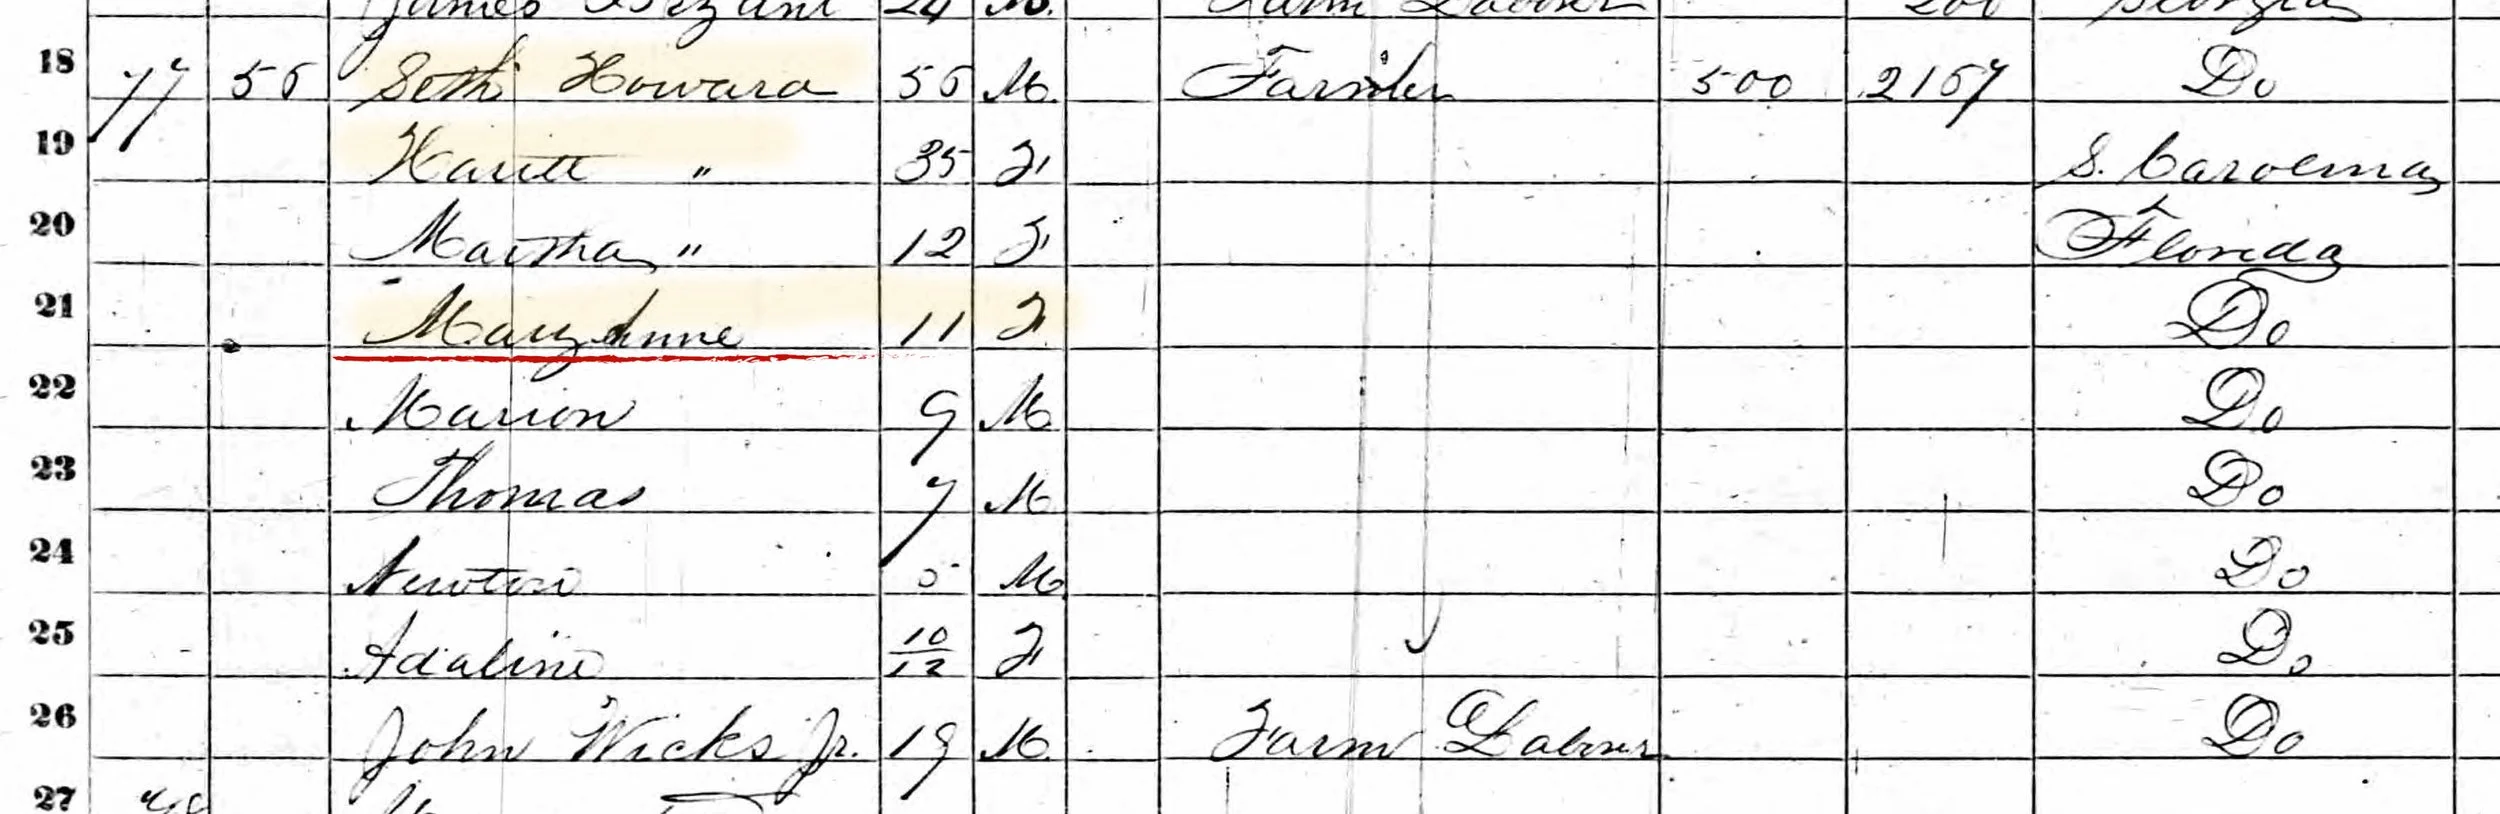 James 24 M. Farm Laborer 200 Georgia
18 77 56 Seth Howard 56 M. Farmer 500 2167 Do
19 Hariett " 35 F S. Carolina
20 Martha " 12 F Florida
21 Mary Anne 11 F Do
22 Marion 9 M Do
23 Thomas 7 M Do
24 Newton 5 M Do
25 Adaline 10/12 F Do
26 John Wicks Jr. 19 M. Farm Laborer Do
27